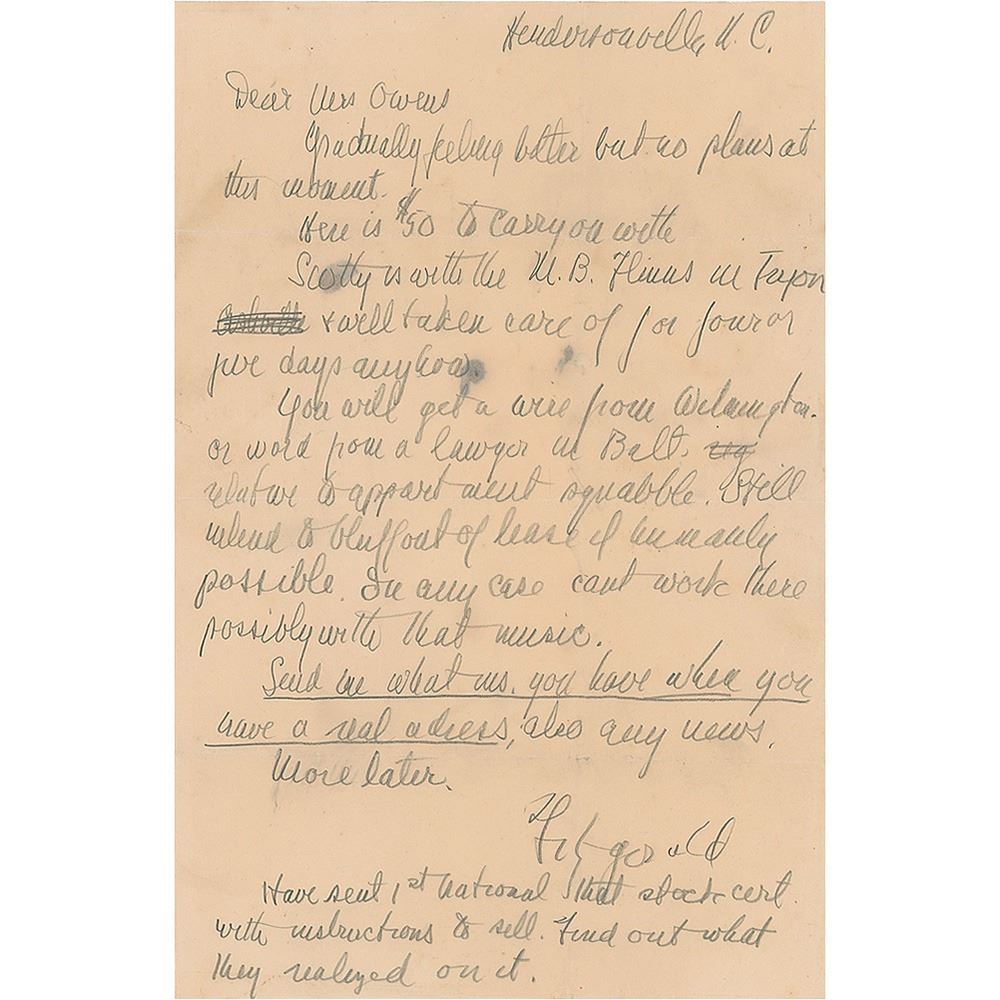 Hendersonville, N. C.
Dear Mrs Owens
Gradually feeling better but no plans at
this moment.
Here is $50 to carry on with
Scotty is with the M. B. Flinns in Tryon
& well taken care of for four or
five days anyhow.
You will get a wire from Wilmington.
or word from a lawyer in Balt.
relative to appartment squabble. Still
intend to bluff out of lease if humanly
possible. In any case cant work there
possibly with that music.
Send me what ms. you have when you
have a real adress, also any news.
More later.
Fitzgerald
Have sent 1st National that stock cert.
with instructions to sell. Find out what
they realized on it.